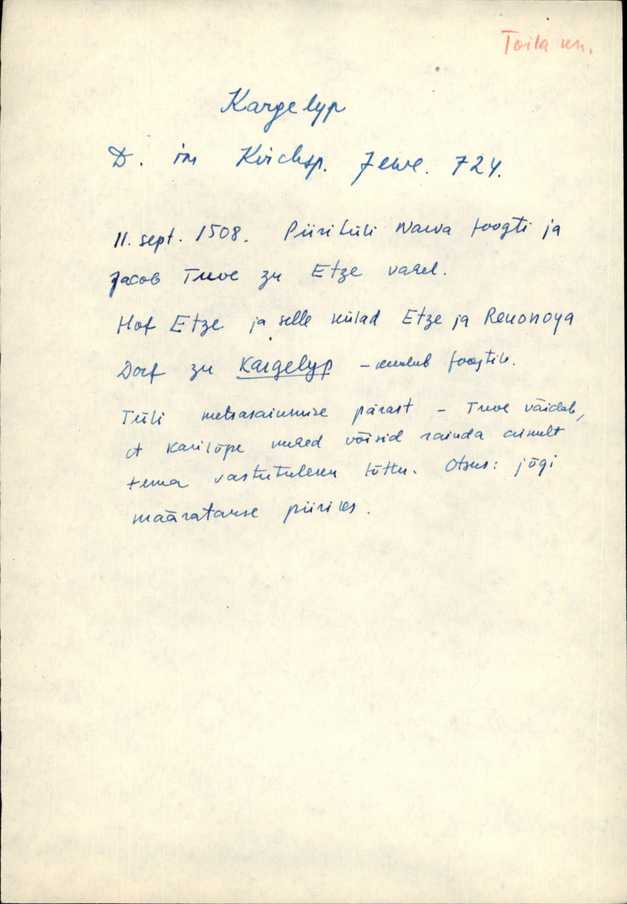 Toila kn.
Kargelyp
D. im Kirchsp. Jewe. 724.
11. sept. 1508. Piiritüli Narva foogti ja
Jacob Tuve zu Etze vahel.
Hof Etze ja selle külad Etze ja Revonoya
Dorf zu Kargelyp - kuulub foogtile.
Tüli metsaraiumise pärast - Tuve väidab,
et Kariküpe mehed võisid raiuda ainult
tema vastutuleku tõttu. Otsus: jõgi
määratakse piiriks.